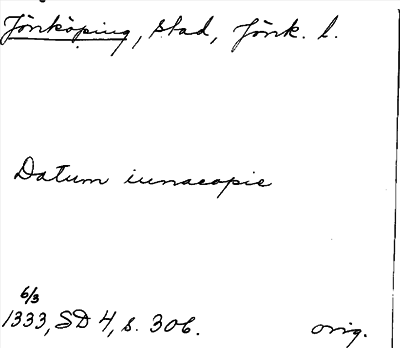 Jönköping, stad, Jönk. l.
Datum iunacopie
6/3
1333, SD 4, s. 306. orig.